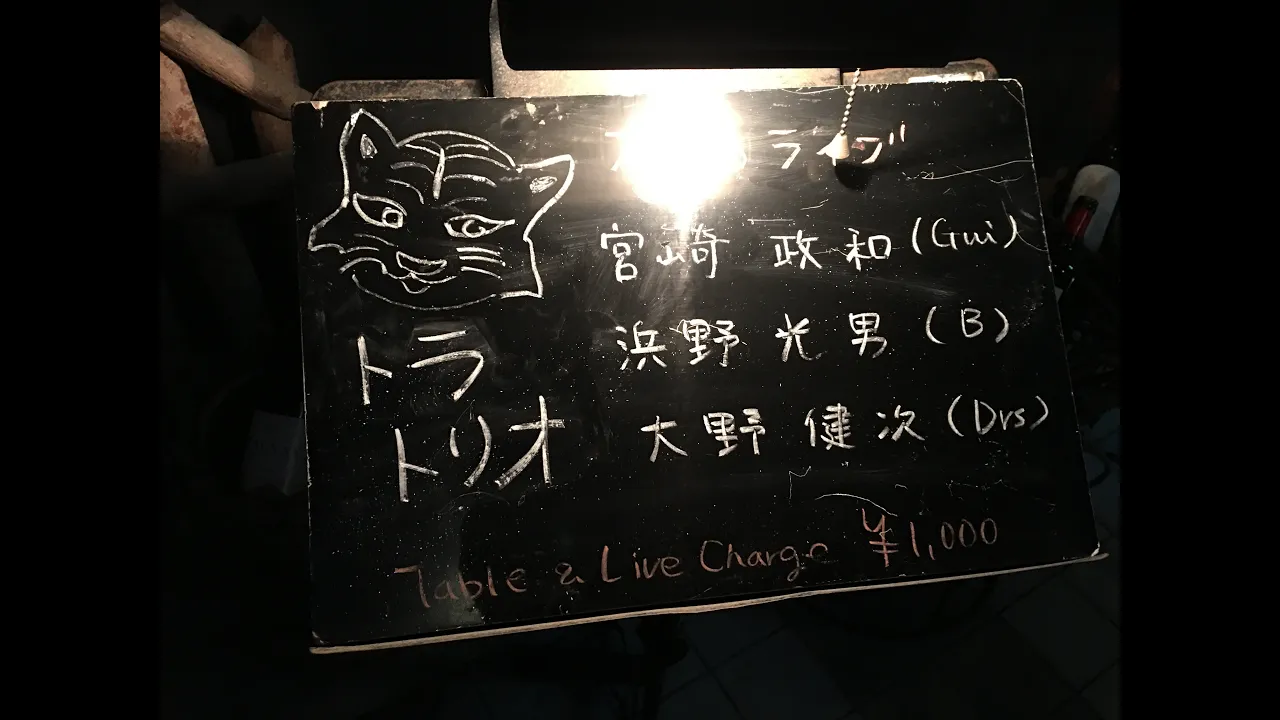 宮崎 政和 (Gui)
浜野 光男 (B)
大野 健次 (Drs)
トラ
トリオ
Table & Live Charge ¥1,000